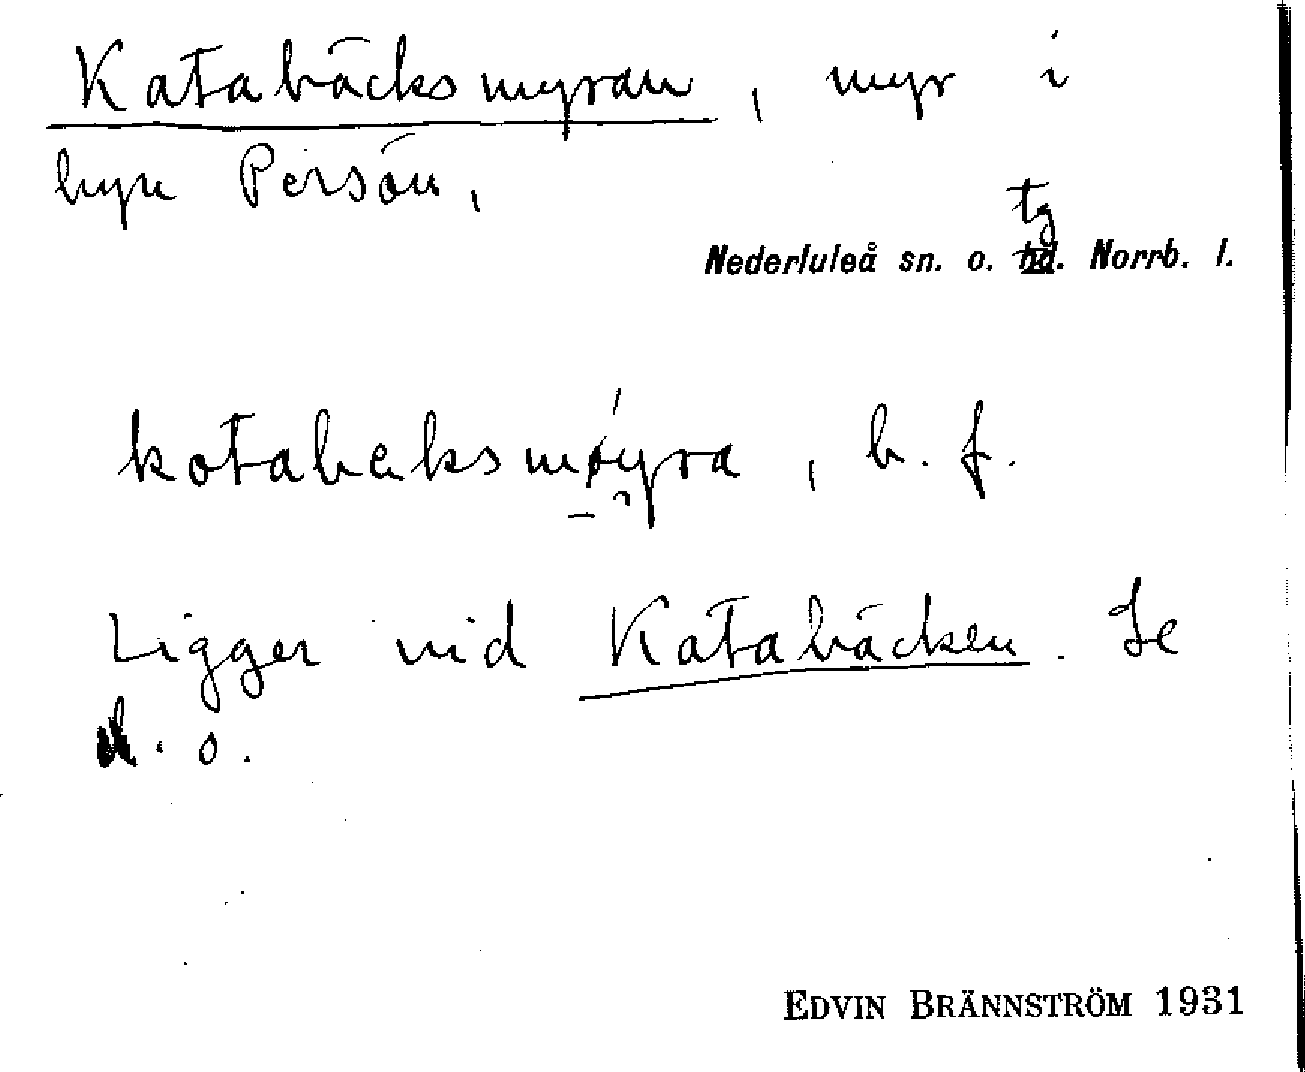 Katabäcksmyran, myr i
byn Persön,
tg
Nederluleå sn. o. hd. Norrb. l.
kotabeksmøyra, b. f.
Ligger vid Katabäcken. Se
d. o.
EDVIN BRÄNNSTRÖM 1931